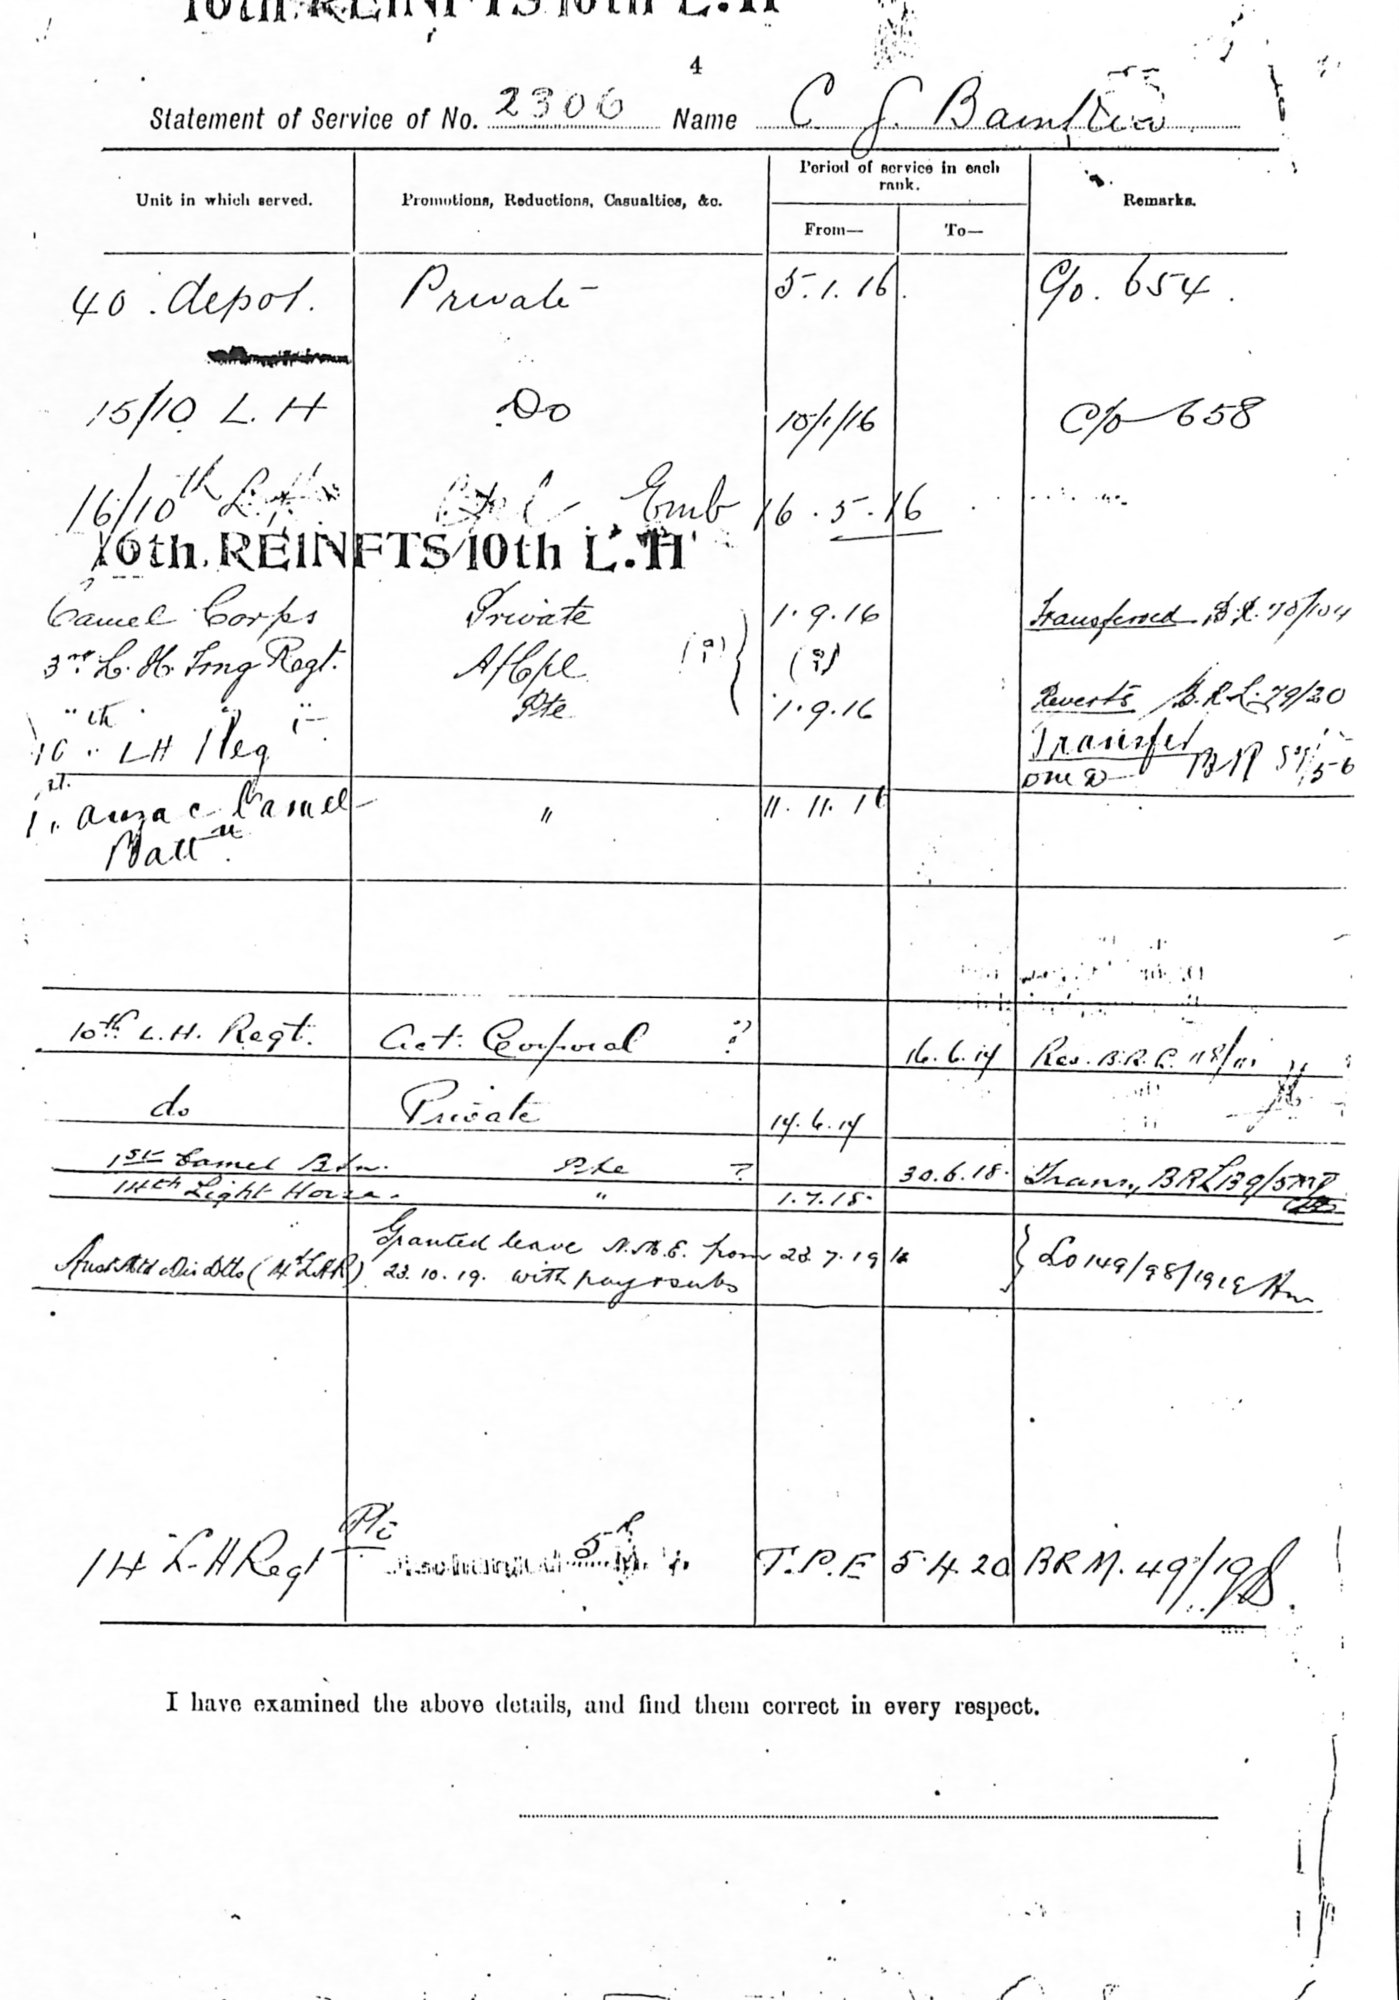 16th REINFTS 10th L.H
4
Statement of Service of No. 2306 Name C J
Unit in which served. Promotions, Reductions, Casualties, &c. Period of service in each rank. Remarks.
From— To—
40 . depot. Private 5.1.16 C/o. 654.
15/10 L. H Do 10/1/16 C/o 658
16/10th L. Emb 16.5.16
16th. REINFTS/10th L.H
Camel Corps Private 1.9.16 Transferred
3rd L. H. Trng Regt. A/Cpl (?) (?)
" " Pte 1.9.16 Reverts B.R.L. 79/20
10th LH Reg Transfer
1st Anzac Camel " 11.11.16
Battn
10th L.H. Regt. Act. Corporal ? 16.6.17 Rev. B.R.L.
do Private 17.6.17
1st Camel Btn. Pte ? 30.6.18. Trans,
14th Light Horse. " 1.7.18.
Granted leave N.M.E. from 23.7.19 to
23.10.19. with pay & subs
14 L.H Regt Pte Discharged 5th M.D. T.P.E 5.4.20 BRM. 49/198
I have examined the above details, and find them correct in every respect.